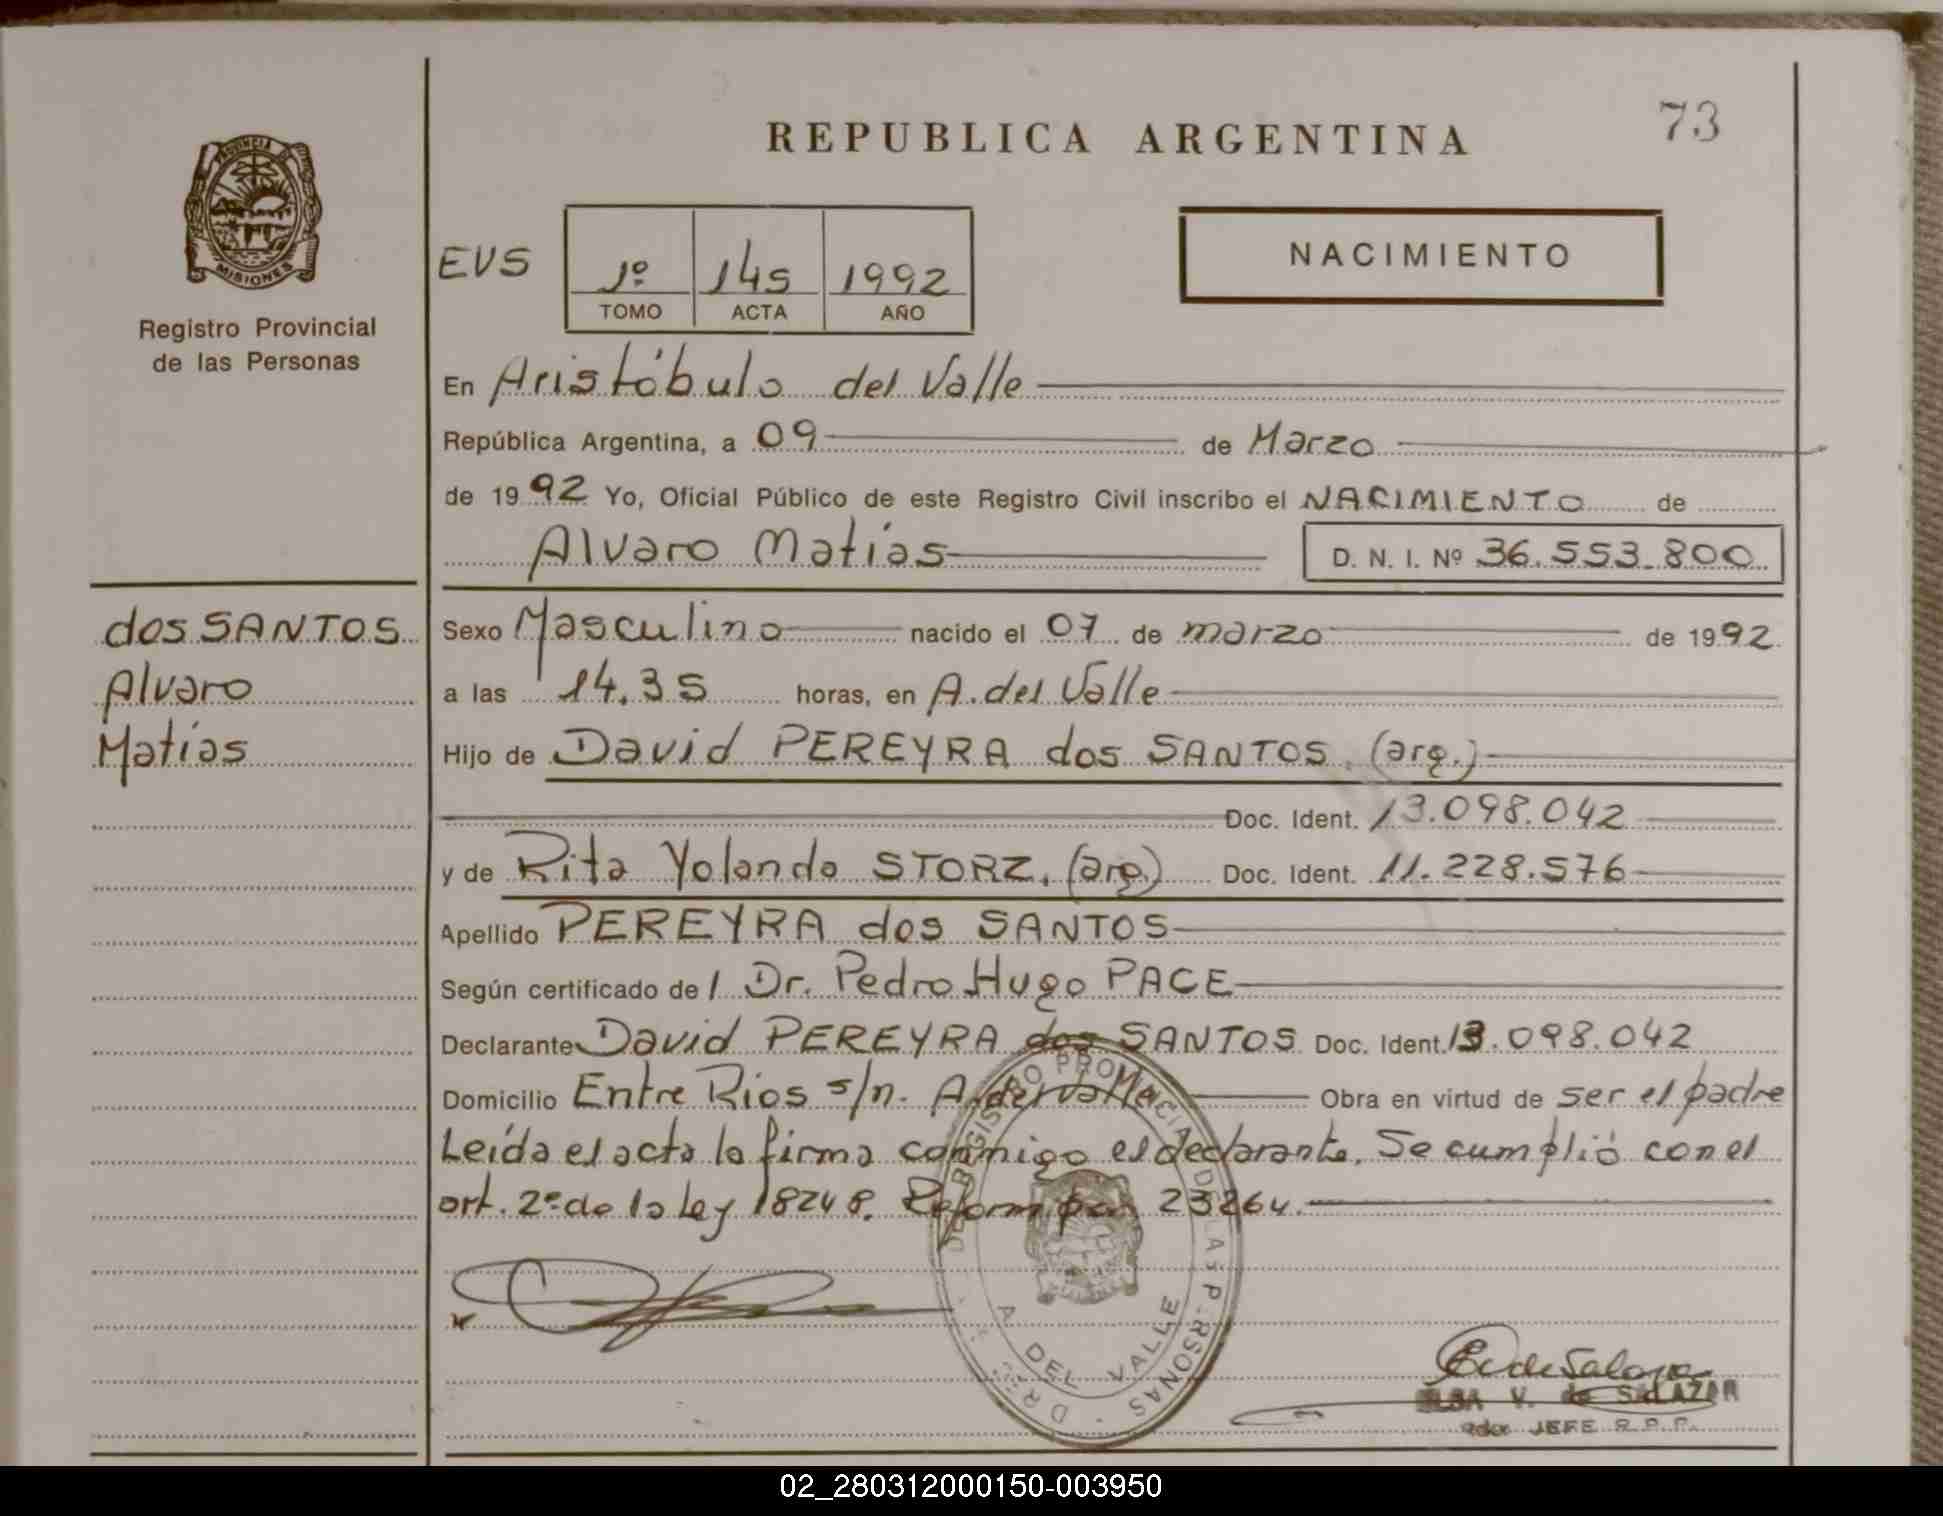 73
REPUBLICA ARGENTINA
PROVINCIA DE
MISIONES
Registro Provincial
de las Personas
EVS
1º 145 1992
TOMO ACTA AÑO
NACIMIENTO
En Aristóbulo del Valle
República Argentina, a 09 de Marzo
de 1992 Yo, Oficial Público de este Registro Civil inscribo el NACIMIENTO de
Alvaro Matías D. N. I. Nº 36.553.800
dos SANTOS
Alvaro
Matías
Sexo Masculino nacido el 07 de marzo de 1992
a las 14.35 horas, en A. del Valle
Hijo de David PEREYRA dos SANTOS. (arg.)
Doc. Ident. 13.098.042
y de Rita Yolanda STORZ. (arg.) Doc. Ident. 11.228.576
Apellido PEREYRA dos SANTOS
Según certificado de l Dr. Pedro Hugo PACE
Declarante David PEREYRA dos SANTOS Doc. Ident. 13.098.042
Domicilio Entre Rios s/n. A. del Valle Obra en virtud de ser el padre
Leída el acta la firma conmigo el declarante. Se cumplió con el
art. 2º de la Ley 18248. Reform por 23264.
REGISTRO PROVINCIAL DE LAS PERSONAS
A. DEL VALLE
V. de SALAZAR
JEFE R.P.P.
02_280312000150-003950